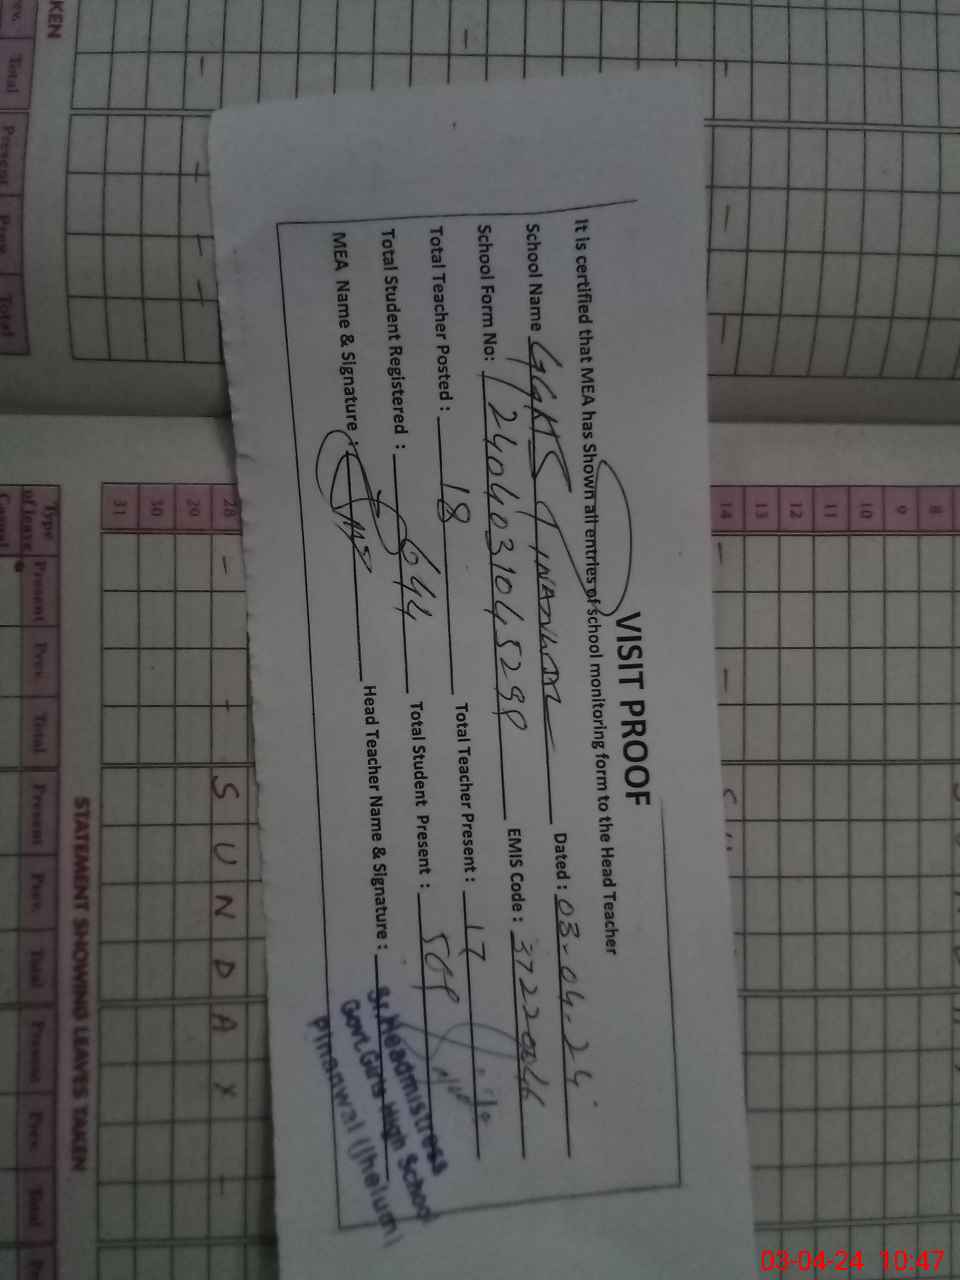 VISIT PROOF
It is certified that MEA has Shown all entries of school monitoring form to the Head Teacher
School Name GGHS Dated : 03-04-24
School Form No: EMIS Code :
Total Teacher Posted : 18 Total Teacher Present : 17
Total Student Registered : 644 Total Student Present :
MEA Name & Signature : Head Teacher Name & Signature :
Sr. Headmistress
Govt. Girls High School
Pinanwal (Jhelum)
KEN
Prev. Total Present Prev. Total
8
9
10
11
12
13
14
28 SUNDAY
29
30
31
Type of leave Present Prev. Total Present Prev. Total Present Prev. Total
Casual
STATEMENT SHOWING LEAVES TAKEN
03-04-24 10:47